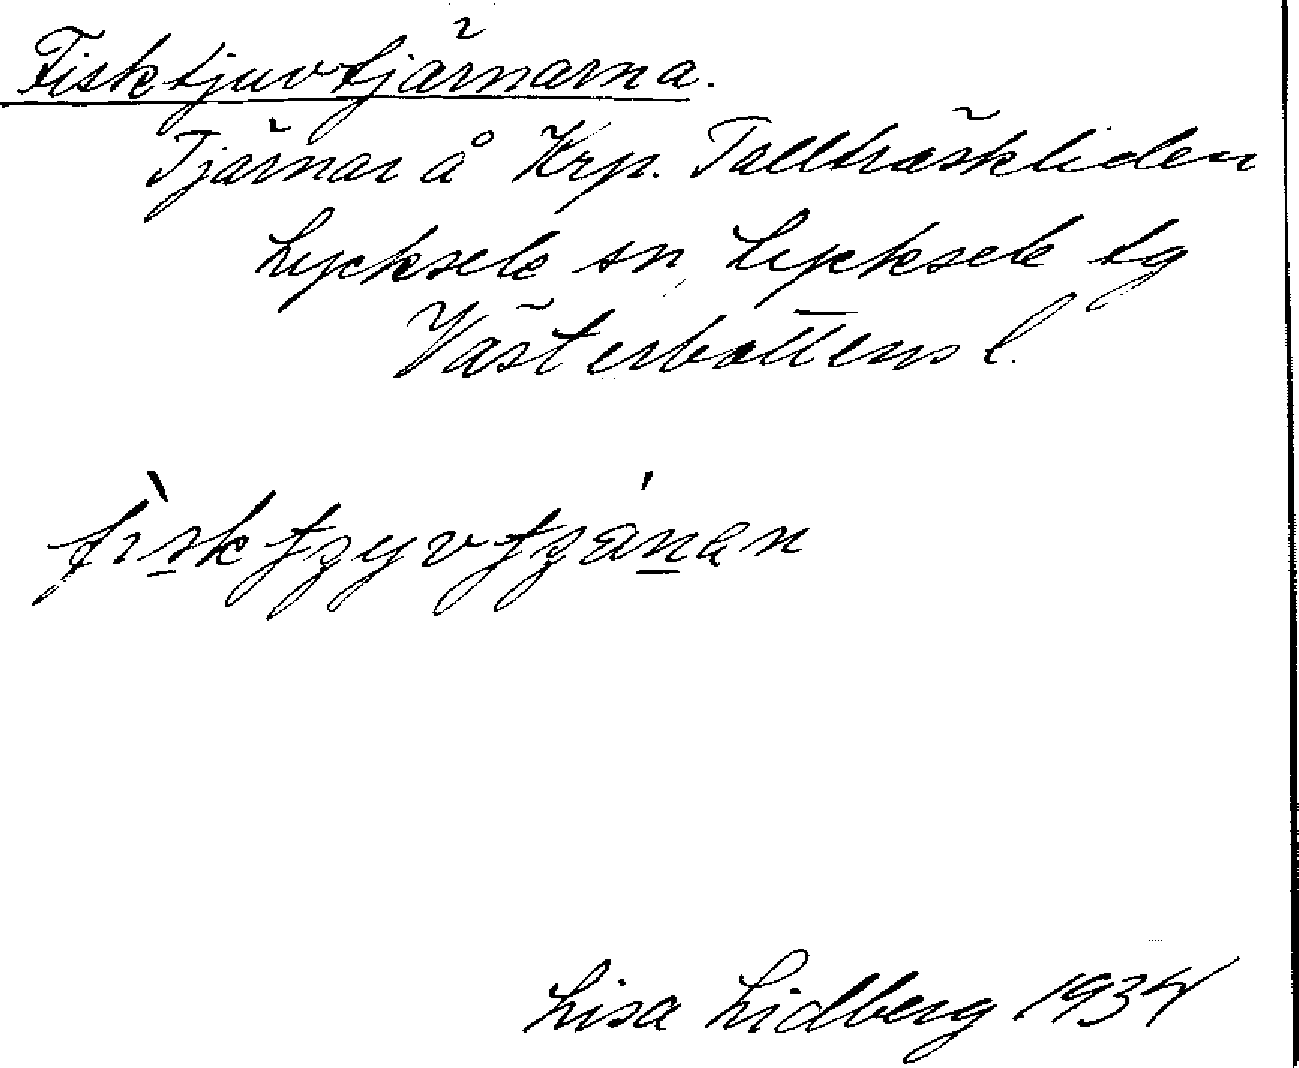 Fisktjuvtjärnarna.
Tjärnar å Krp. Tallträskliden
Lycksele sn, Lycksele tg
Västerbottens l.
Lisa Lidberg 1934